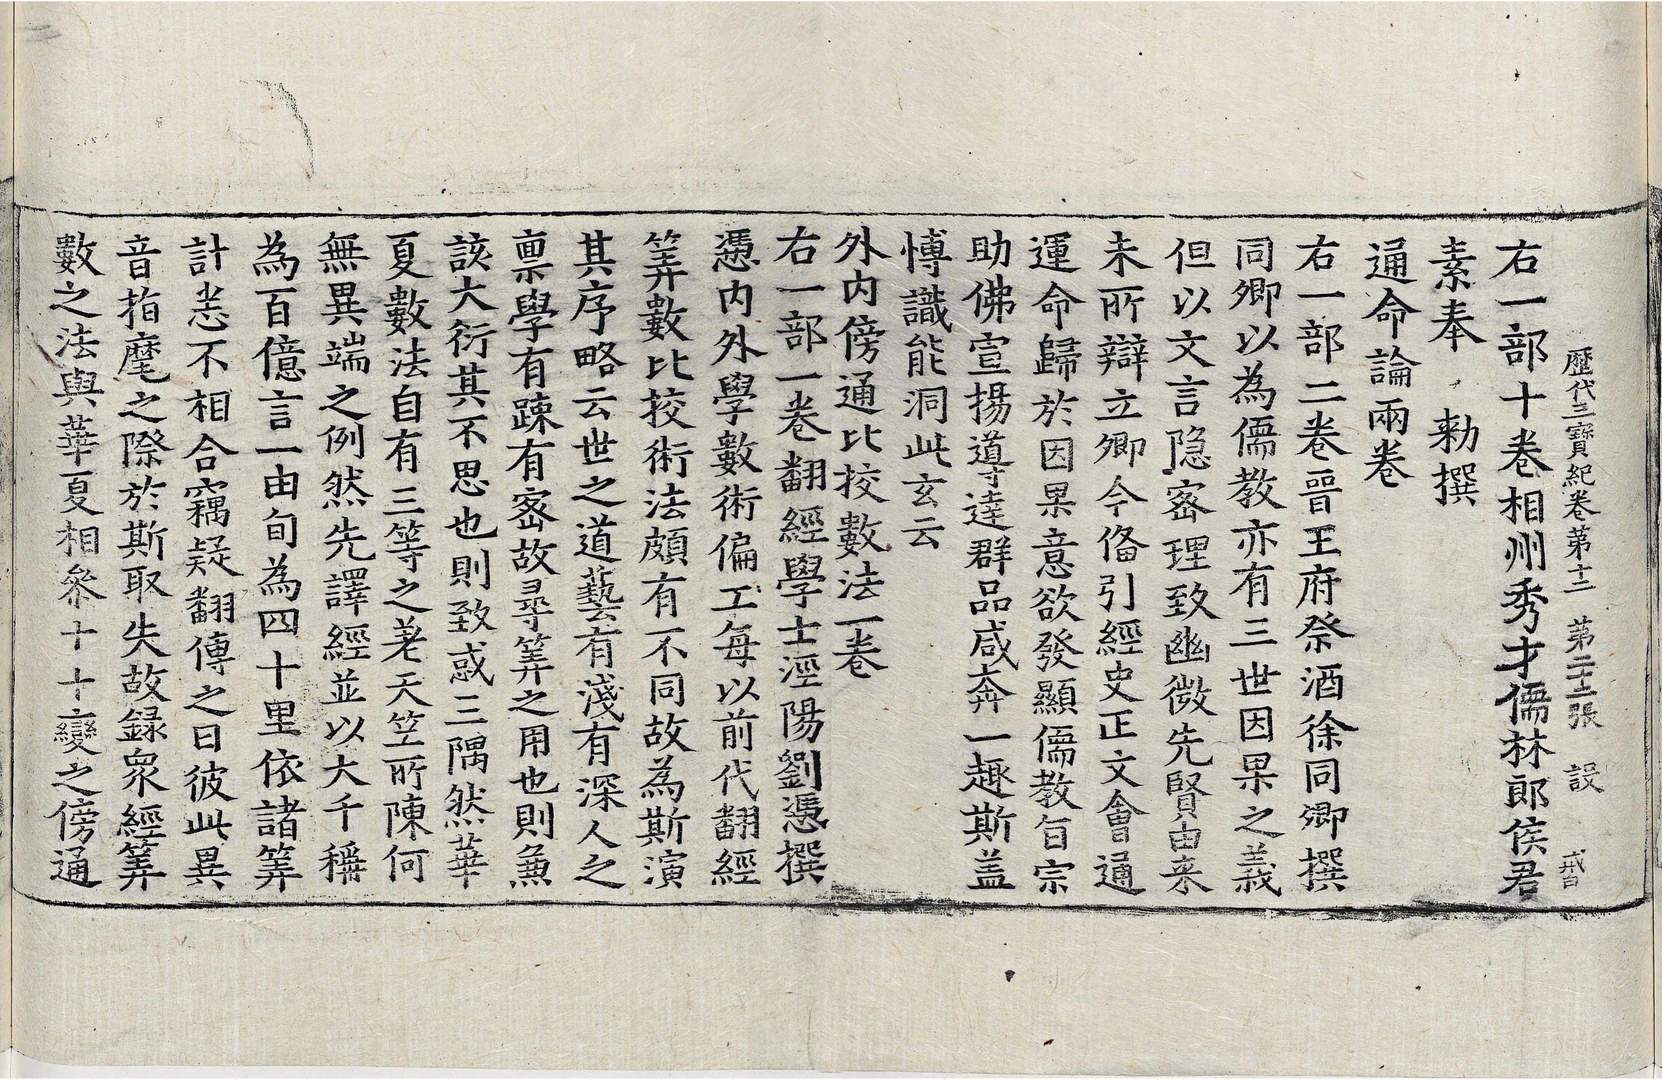 歷代三寶紀卷第十二 第二十三張 設
戒自
右一部十卷相州秀才儒林郎侯君
素奉 勅撰
通命論兩卷
右一部二卷晉王府祭酒徐同卿撰
同卿以為儒教亦有三世因果之義
但以文言隐宻理致幽微先賢由来
未所辯立卿今俻引經史正文會通
運命歸於因果意欲發顯儒教旨宗
助佛宣揚導達群品咸奔一趣斯盖
愽識能洞此玄云
外内傍通比挍數法一卷
右一部一卷翻經學士涇陽劉憑撰
憑内外學數術偏工每以前代翻經
筭數比挍術法頗有不同故為斯演
其序略云世之道藝有淺有深人之
禀學有踈有宻故尋筭之用也則兼
該大衍其不思也則致惑三隅然華
夏數法自有三等之差天笁所陳何
無異端之例然先譯經並以大千稱
為百億言一由旬為四十里依諸筭
計悉不相合竊疑翻傳之日彼此異
音指麾之際於斯取失故録衆經筭
數之法與華夏相參十十變之傍通